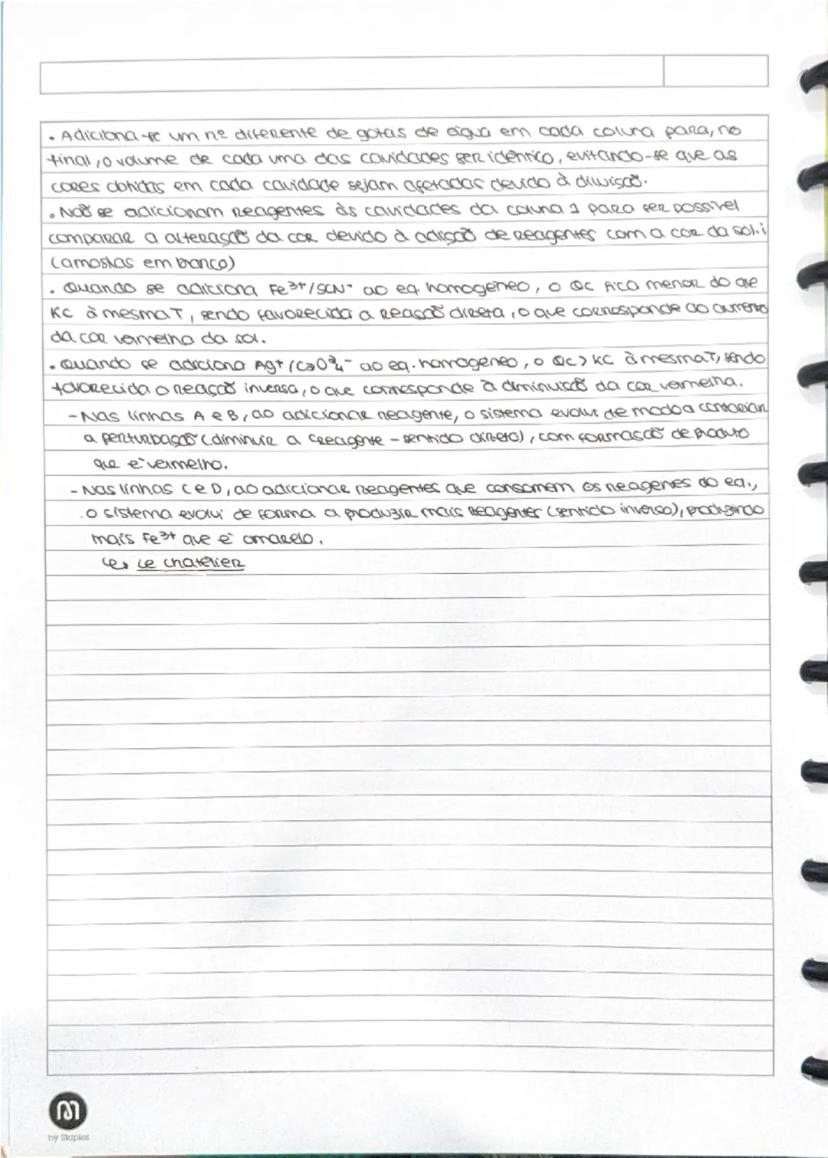 • Adiciona-se um nº diferente de gotas de água em cada coluna para, no
final, o volume de cada uma das cavidades ser idêntico, evitando-se que as
cores obtidas em cada cavidade sejam afetadas devido à diluição.
• Não se adicionam reagentes às cavidades da coluna 1 para ser possível
comparar a alteração da cor devido à adição de reagentes com a cor da sol. i
(amostras em branco)
• Quando se adiciona Fe³⁺/SCN⁻ ao eq. homogéneo, o Qc fica menor do que
Kc à mesma T, sendo favorecida a reação direta, o que corresponde ao aumento
da cor vermelha da sol.
• Quando se adiciona Ag⁺/C₂O₄²⁻ ao eq. homogéneo, o Qc > Kc à mesma T, sendo
favorecida a reação inversa, o que corresponde à diminuição da cor vermelha.
- Nas linhas A e B, ao adicionar reagente, o sistema evolui de modo a contrariar
a perturbação (diminuir a c reagente - sentido direto), com formação de produto
que é vermelho.
- Nas linhas C e D, ao adicionar reagentes que consomem os reagenes do eq.,
o sistema evolui de forma a produzir mais reagentes (sentido inverso), produzindo
mais Fe³⁺ que é amarelo.
↳ Le chatelier
M
by Staples